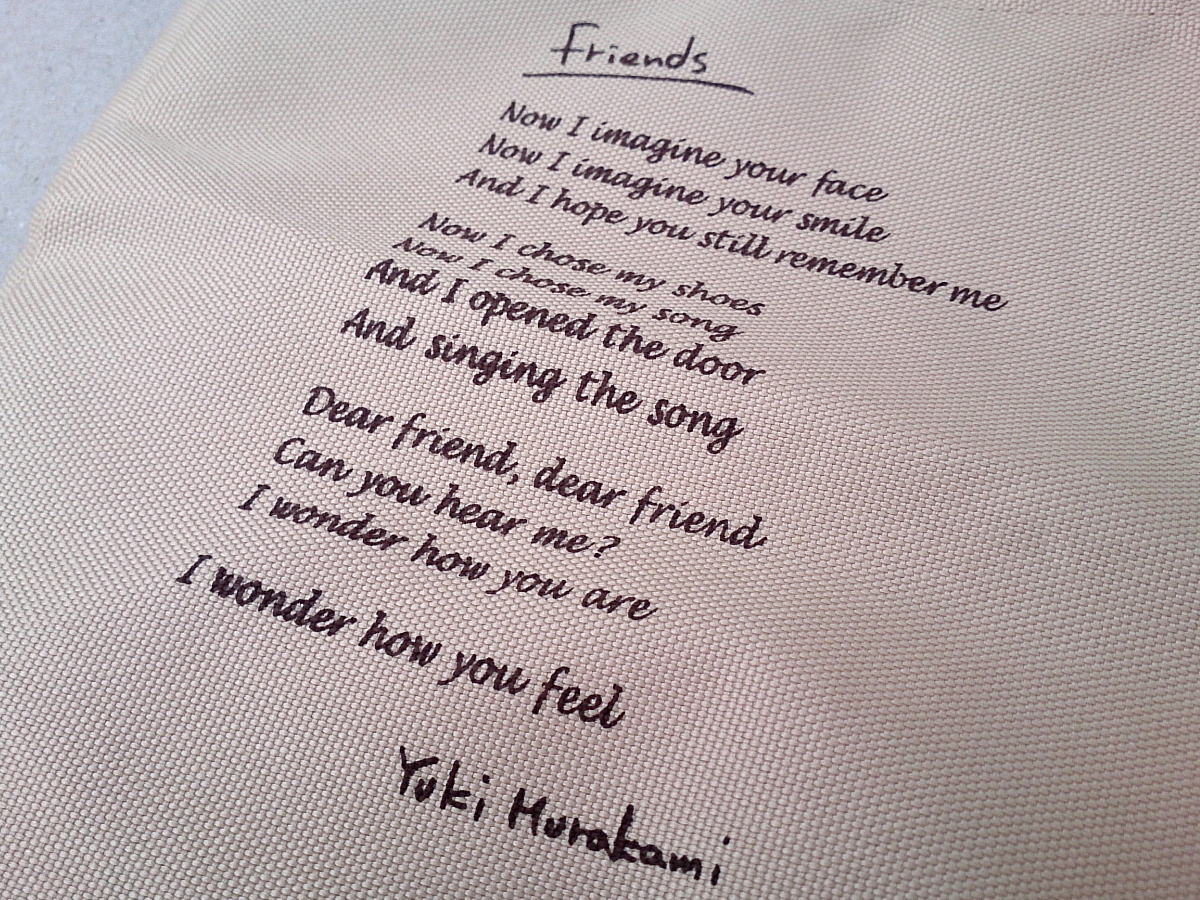 Friends
Now I imagine your face
Now I imagine your smile
And I hope you still remember me
Now I chose my shoes
Now I chose my song
And I opened the door
And singing the song
Dear friend, dear friend
Can you hear me?
I wonder how you are
I wonder how you feel
Yuki Murakami